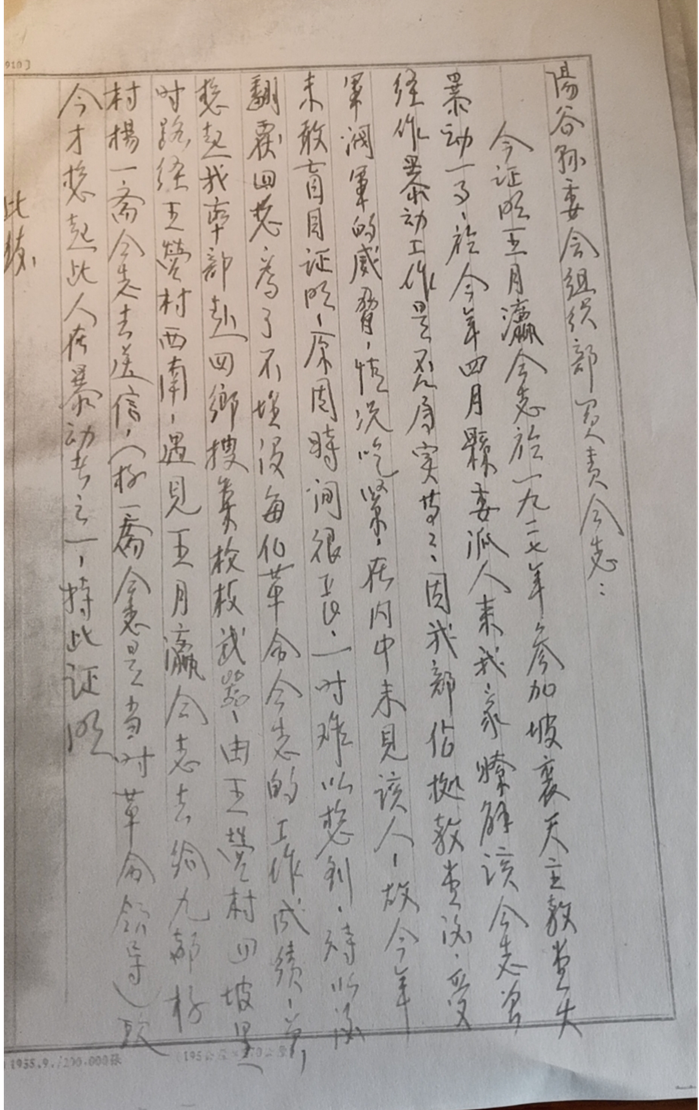 陽谷孫委会组织部负责仝志：
今证明王月瀛仝志於一九二七年参加坡裏天主教堂大
暴动一事，於今年四月縣委派人来我家瞭解该仝志曾
经作暴动工作是否属实等之，因我部佔据教堂後，受
军阀军的威胁，情况吃紧，在内中未见该人，故今年
未敢盲目证明，原因時间很长，一时难以想到，特以後
翻覆思，为了不埋没每位革命仝志的工作成绩，
想起我率部赴四鄉搜集枪枝武器，由王营村四坡里
时路经王营村西南，遇见王月瀛仝志去给九都杨
村楊一斋仝志去送信，（杨一斋仝志是当时革命领导）致
今才想起此人在暴动者之一，特此证明
此致
1955.9./200.000张